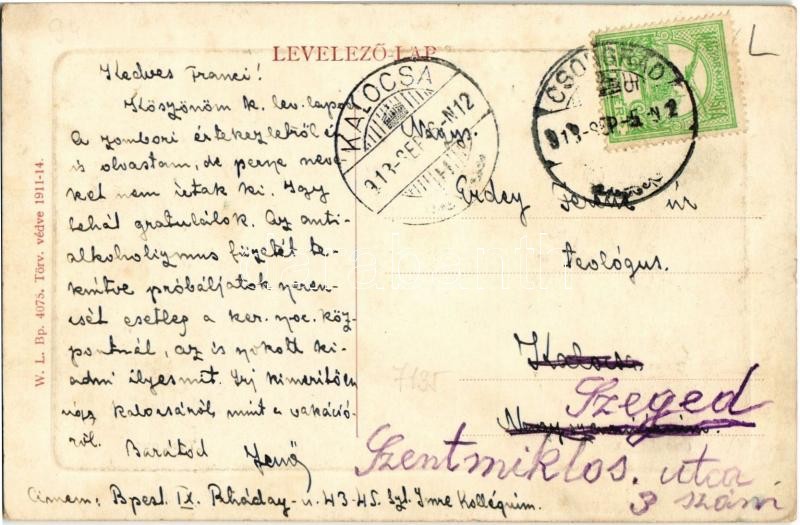 LEVELEZŐ-LAP
Kedves Franci!
Köszönöm k. lev. lapod
A zombori értekezletről én
is olvastam, de persze neve-
ket nem írtak ki. Igy
tehát gratulálok. Az anti-
alkoholizmus füzetét te-
kintve próbáljatok szeren-
csét esetleg a ker. szoc. köz-
pontnál, az is szokott ki-
adni ilyesmit. Irj kimerítően
úgy Kalocsáról, mint a vakáció-
ról. Barátod Jenő
Címem: Bpest. IX. Ráday-u. 43-45. Szt. Imre Kollégium.
KALOCSA
913-SEP.-N12
CSONGRÁD
913-SEP.-5-N 2
Nagys.
Erdey Ferenc úr
teológus.
Kalocsa
Szeged
Szentmiklos. utca
3 szám
7125
L
W. L. Bp. 4075. Törv. védve 1911-14.